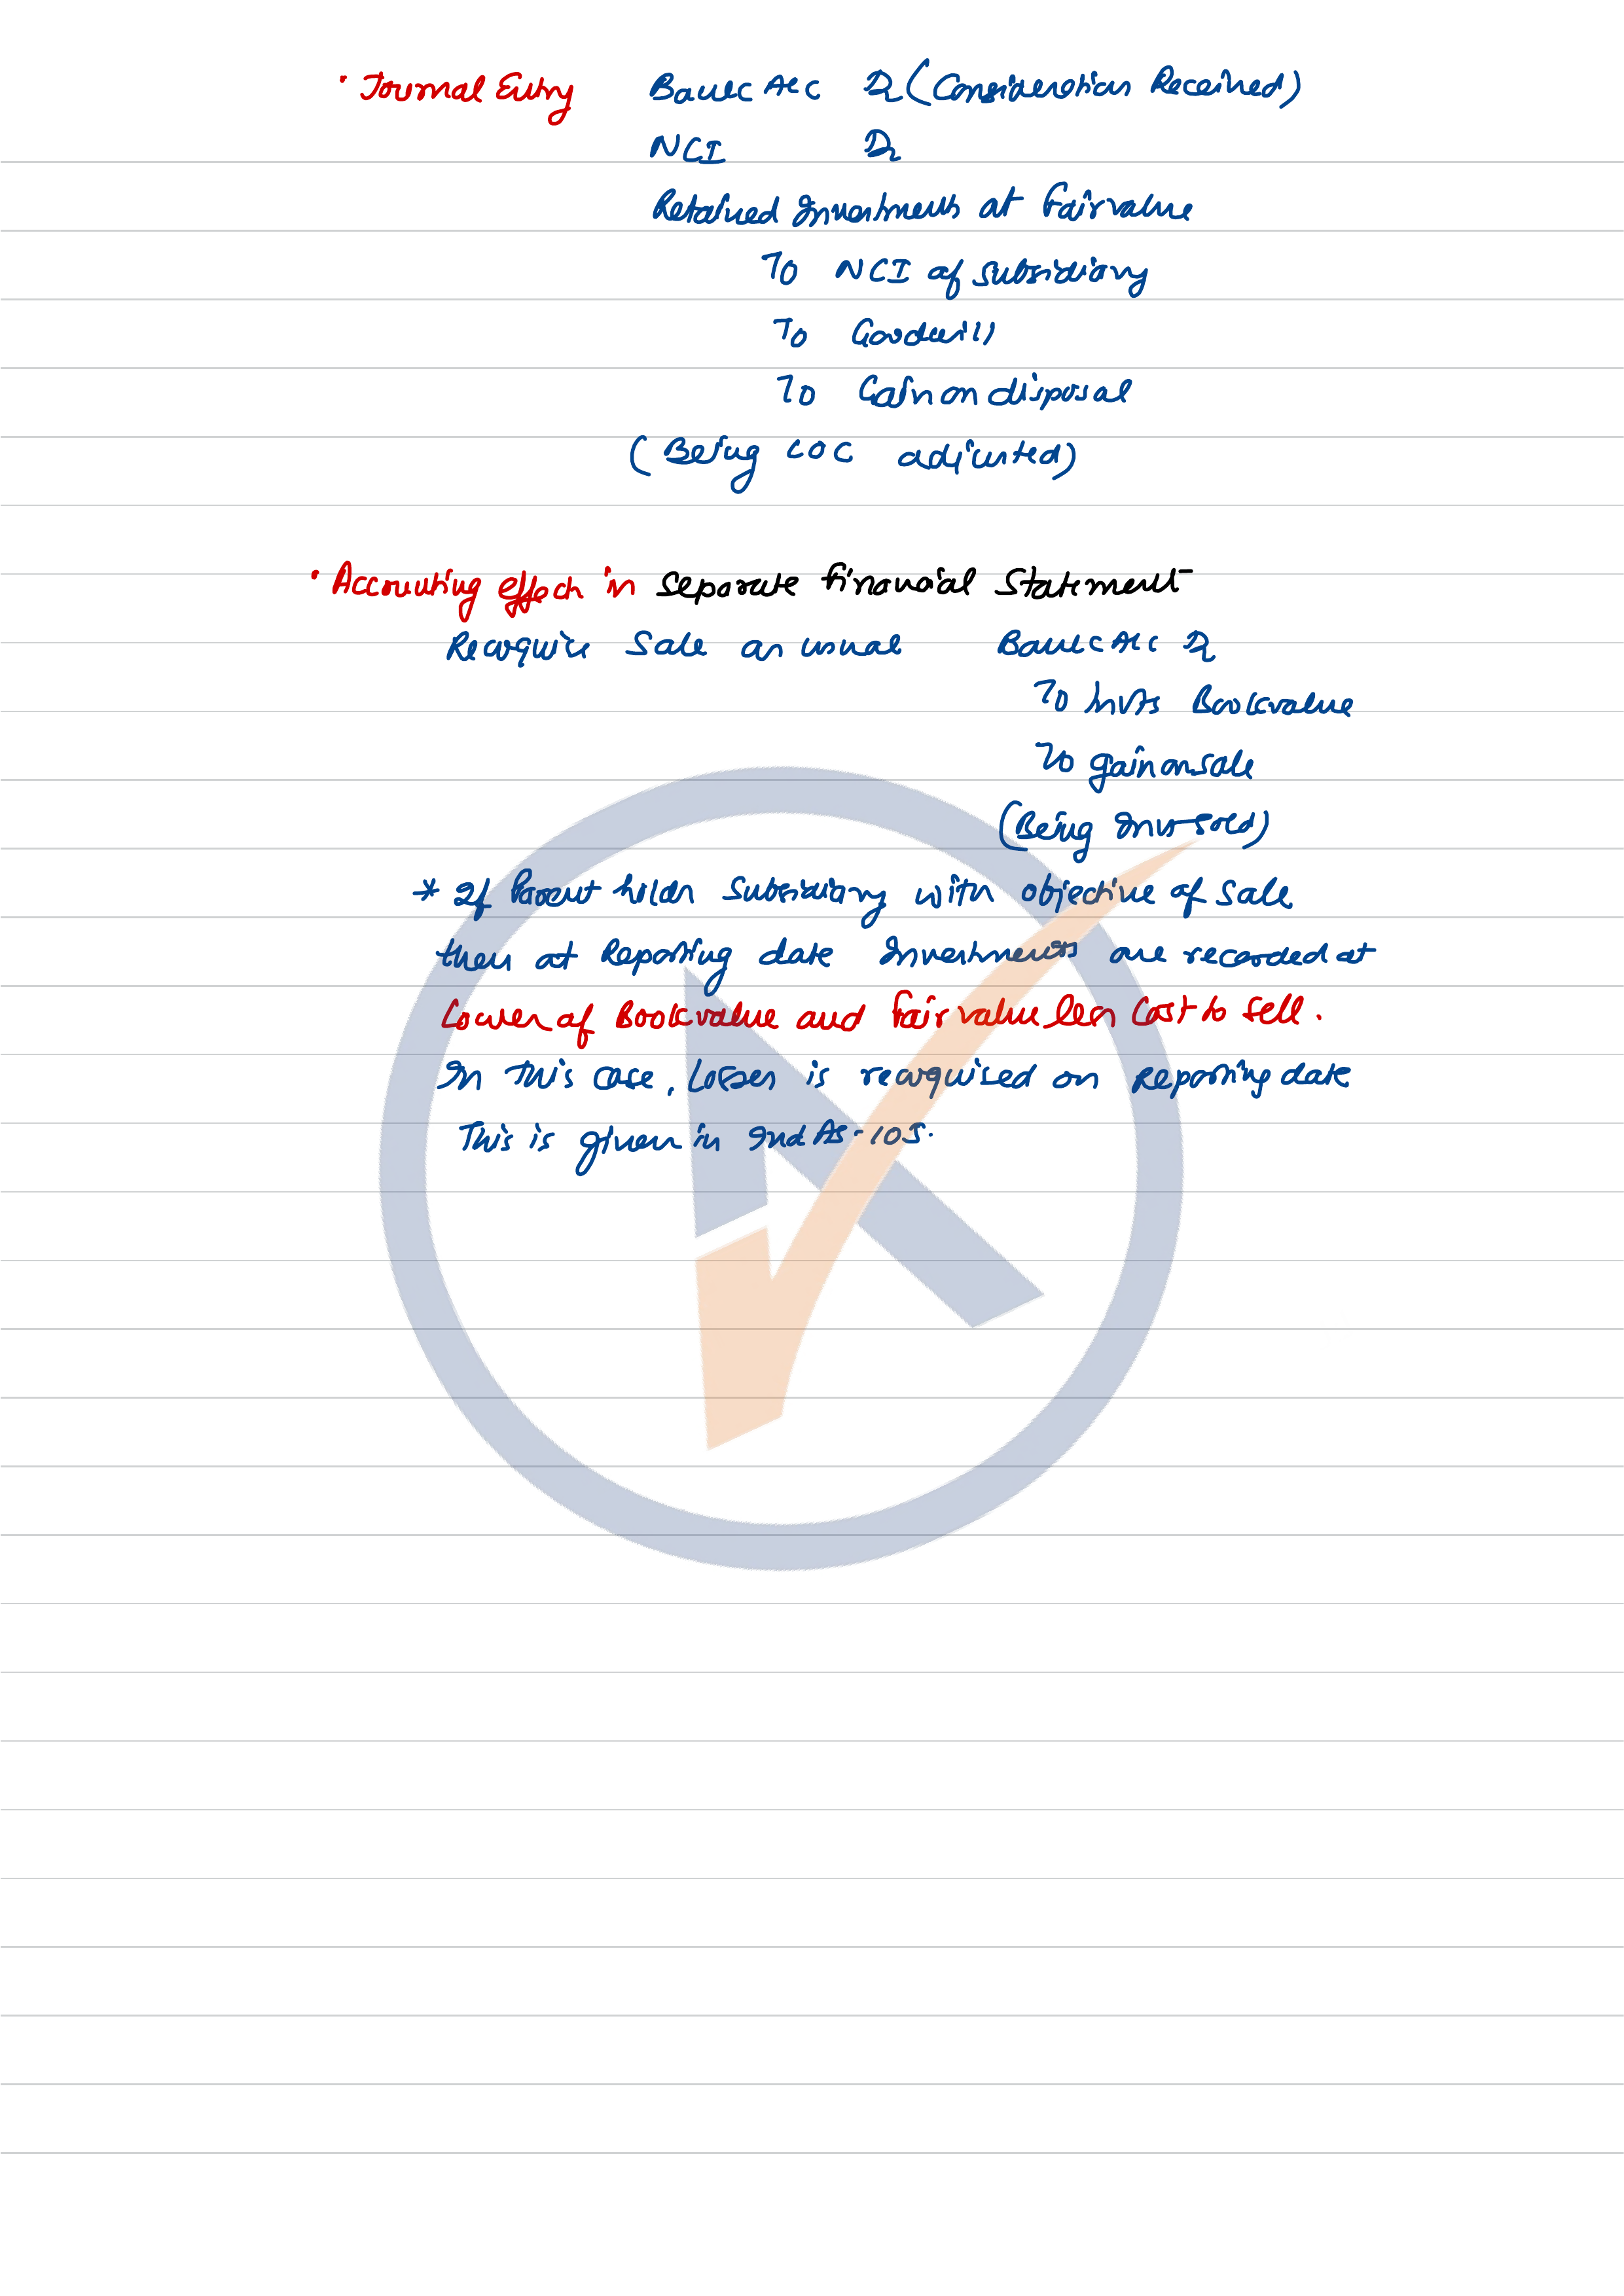 · Journal Entry Bank A/c Dr (Consideration Received)
NCI Dr
Retained Investments at Fair value
To NCI of subsidiary
To Goodwill
To Gain on disposal
(Being LOC adjusted)
· Accounting effects in Separate Financial Statement
Recognise Sale as usual Bank A/c Dr
To Invts Bookvalue
To gain on sale
(Being Invt sold)
* If Parent holds Subsidiary with objective of sale
then at Reporting date Investments are recorded at
Lower of Bookvalue and Fair value less Cost to sell.
In this case, Losses is recognised on Reporting date
This is given in Ind AS-105.